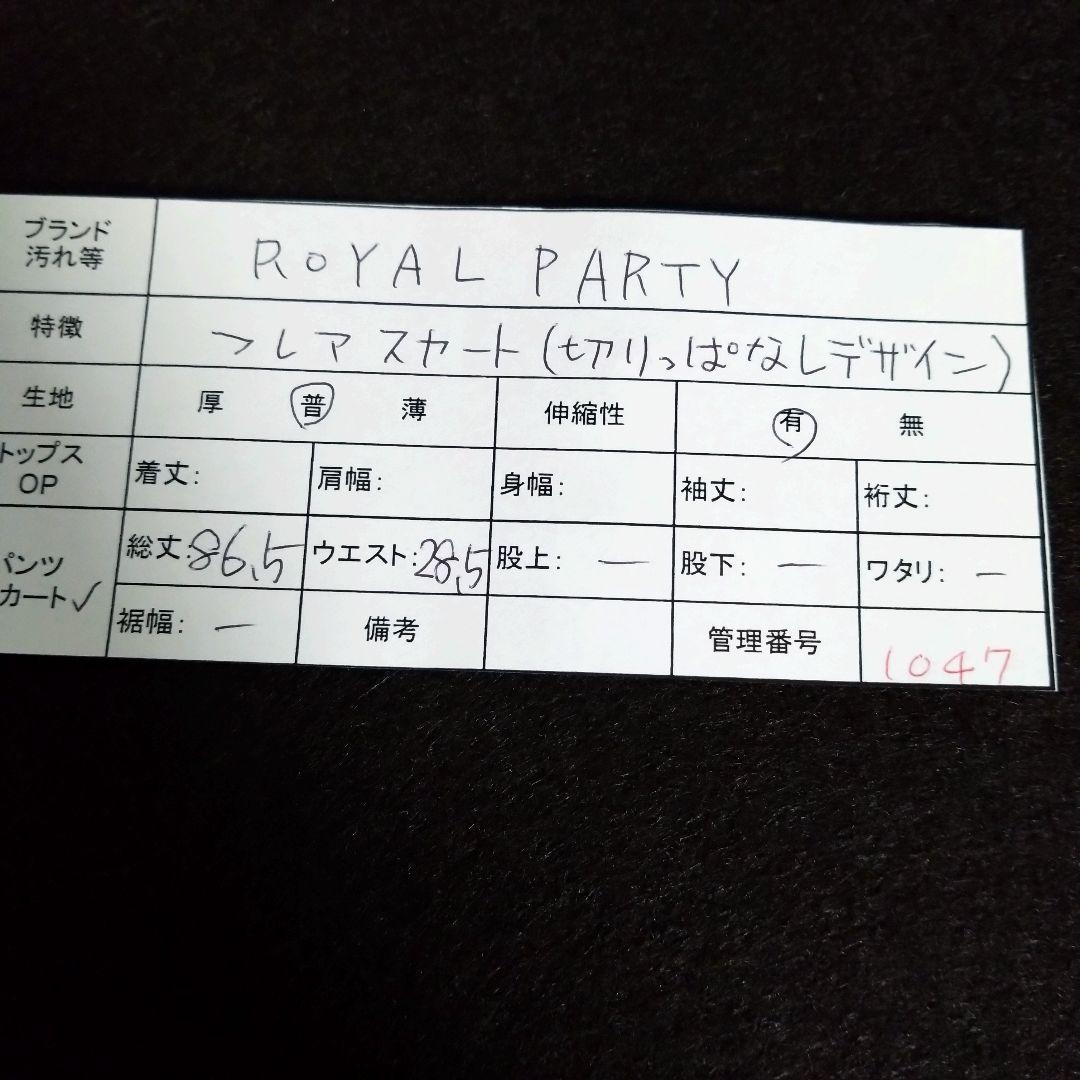 ブランド
汚れ等
ROYAL PARTY
特徴
フレアスカート(切りっぱなしデザイン)
生地 厚 普 薄 伸縮性 有 無
トップス
OP
着丈: 肩幅: 身幅: 袖丈: 裄丈:
パンツ
カート✓
総丈:86,5 ウエスト:28,5 股上: ー 股下: ー ワタリ: ー
裾幅: ー 備考 管理番号 1047